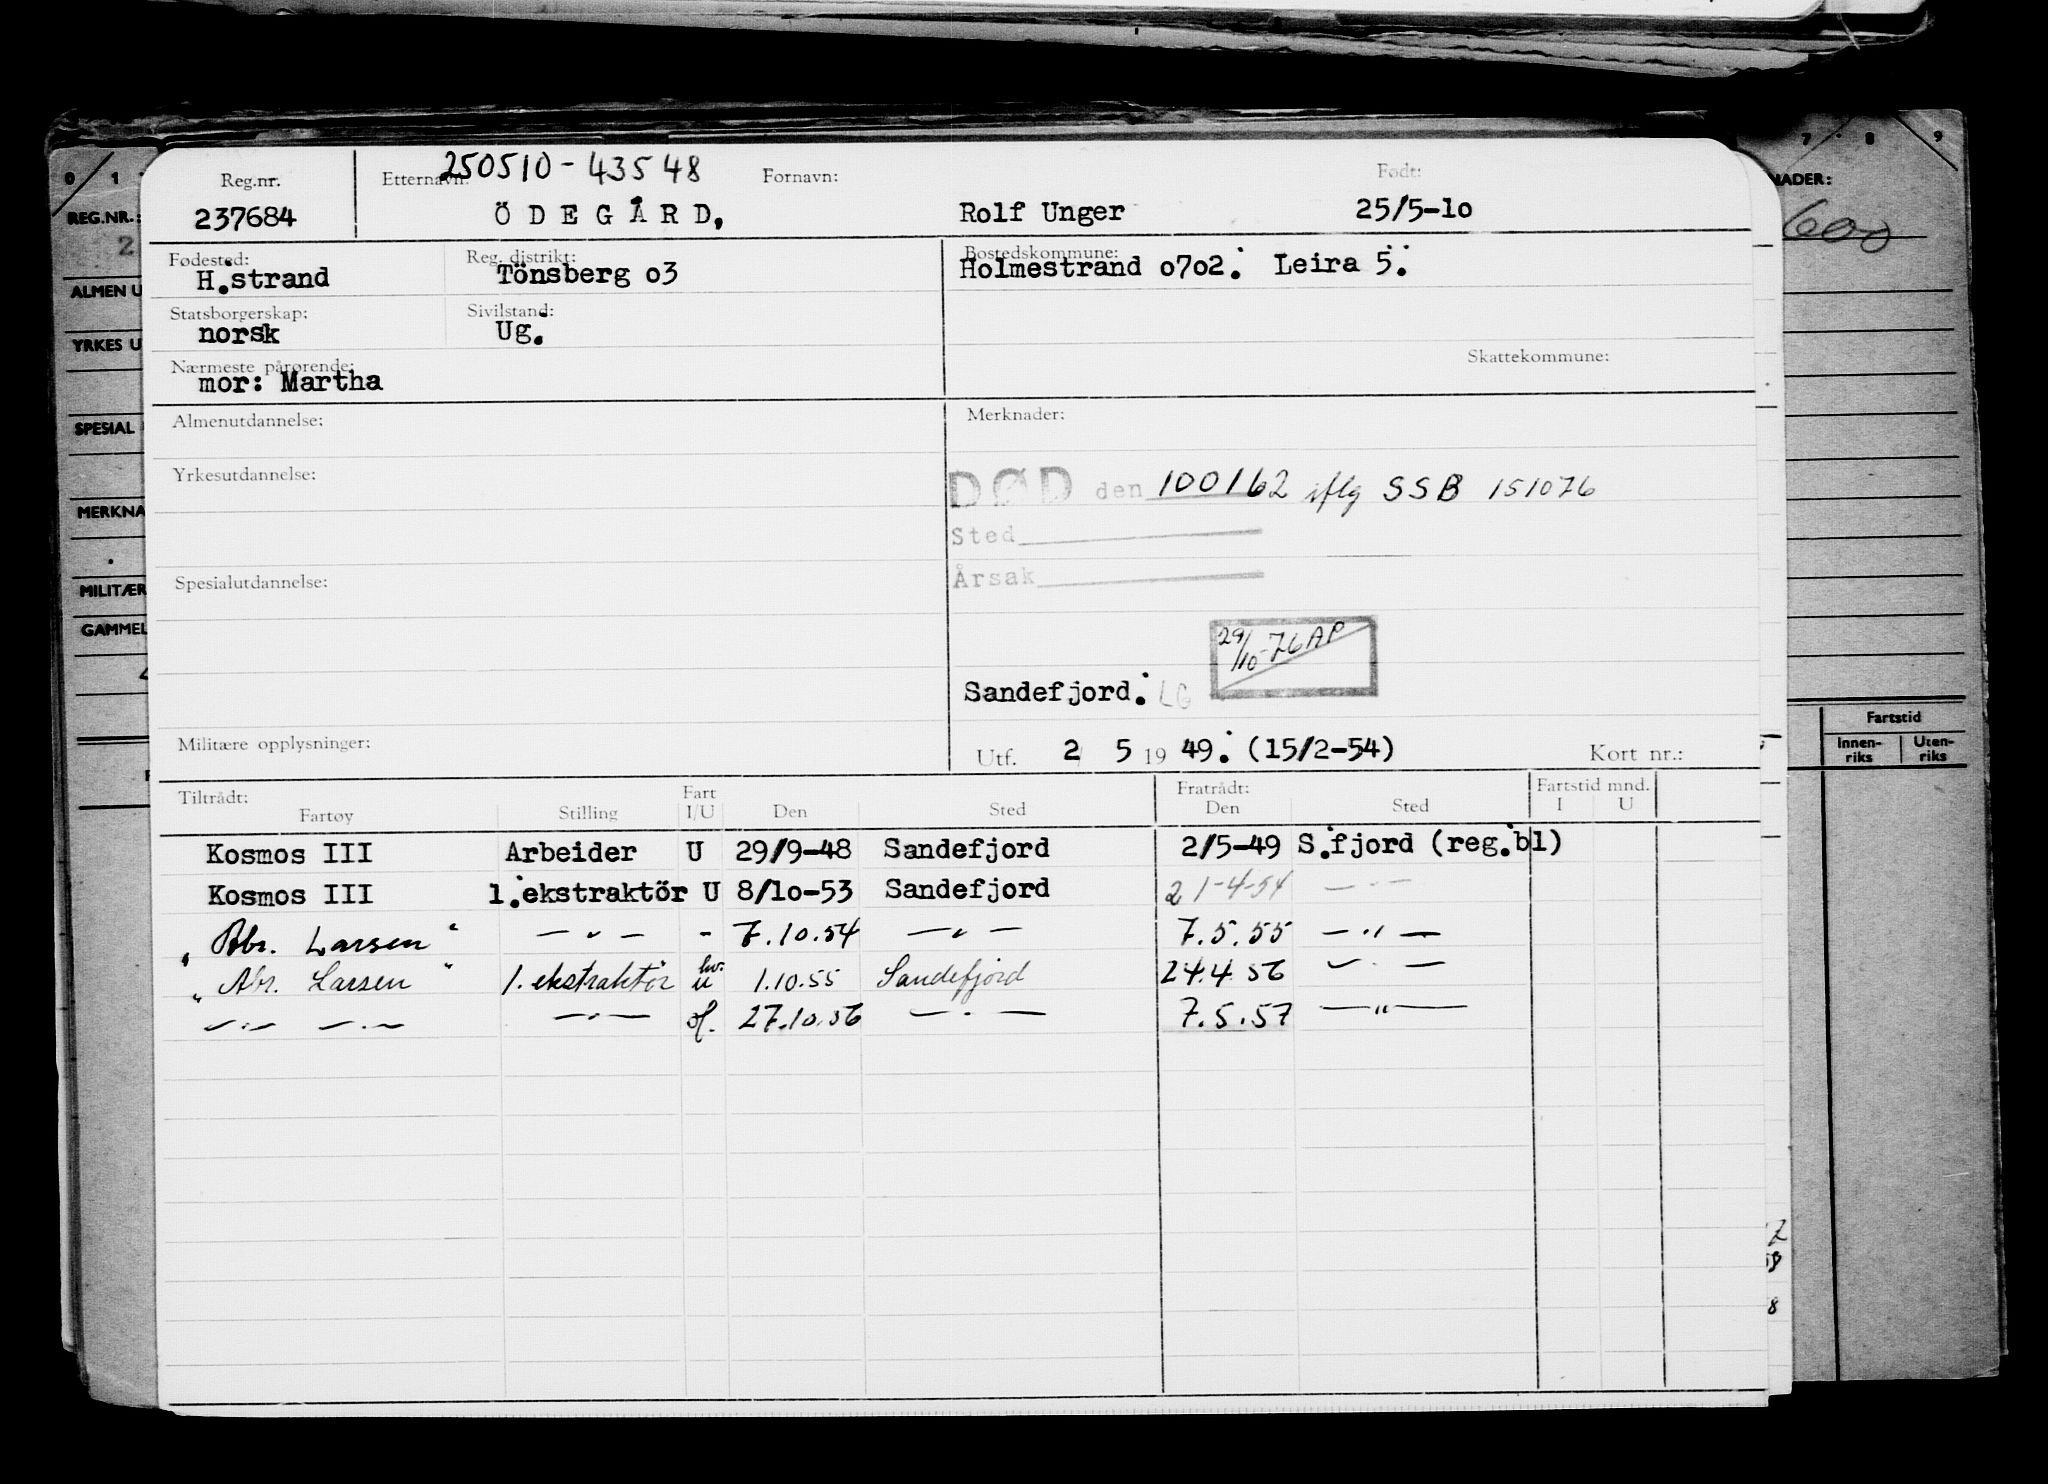 7 8 9
0 1
REG.NR.:
NADER:
2
600
ALMEN U
YRKES U
SPESIAL
MERKNA
MILITÆR
GAMMEL
Fartstid
Innen-riks Uten-riks
250510-43548
Reg.nr. Etternavn: Fornavn: Født:
237684 ÖDEGÅRD, Rolf Unger 25/5-10
Fødested: Reg. distrikt: Bostedskommune:
H.strand Tönsberg o3 Holmestrand o7o2. Leira 5.
Statsborgerskap: Sivilstand:
norsk Ug.
Nærmeste pårørende: Skattekommune:
mor: Martha
Almenutdannelse: Merknader:
Yrkesutdannelse:
DØD den 100162 iflg SSB 151076
Sted
Årsak
Spesialutdannelse:
29/10-76 AP
Sandefjord. LG
Militære opplysninger:
Utf. 2 5 19 49. (15/2-54) Kort nr.:
Tiltrådt: Fart Fratrådt: Fartstid mnd.
Fartøy Stilling I/U Den Sted Den Sted I U
Kosmos III Arbeider U 29/9-48 Sandefjord 2/5-49 S.fjord (reg.bl)
Kosmos III 1.ekstraktör U 8/1o-53 Sandefjord 21-4-54 — " —
" Abr. Larsen " — " — - 7.10.54 — " — 7.5.55 — " —
" Abr. Larsen " 1. ekstraktör hv. u 1.10.55 Sandefjord 24.4.56 — " —
— " — — " — — " — 27.10.56 — " — 7.5.57 — " —